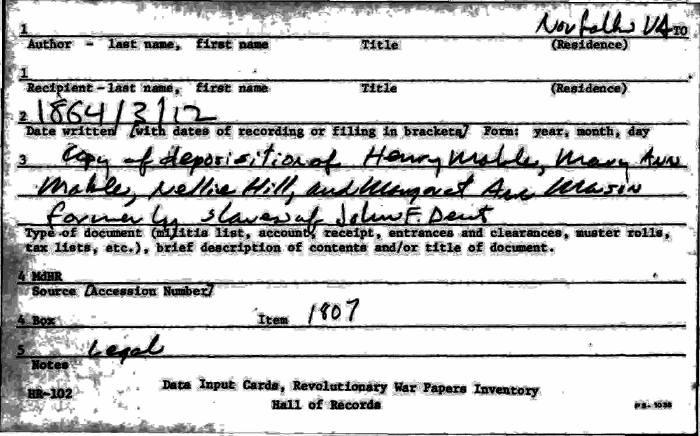 1 Norfolk VA TO
Author - last name, first name Title (Residence)
1
Recipient - last name, first name Title (Residence)
2 1864/3/12
Date written [with dates of recording or filing in brackets] Form: year, month, day
3 Copy of deposicition of Henry Mahle, Mary Ann
Mahle, Nellie Hill, and Margaret Ann Mason
formerly slaves of John F. Dent
Type of document (militia list, account, receipt, entrances and clearances, muster rolls,
tax lists, etc.), brief description of contents and/or title of document.
4 MdHR
Source [Accession Number]
4 Box Item 1807
5 Legal
Notes
HR-102 Data Input Cards, Revolutionary War Papers Inventory
Hall of Records PS-1038